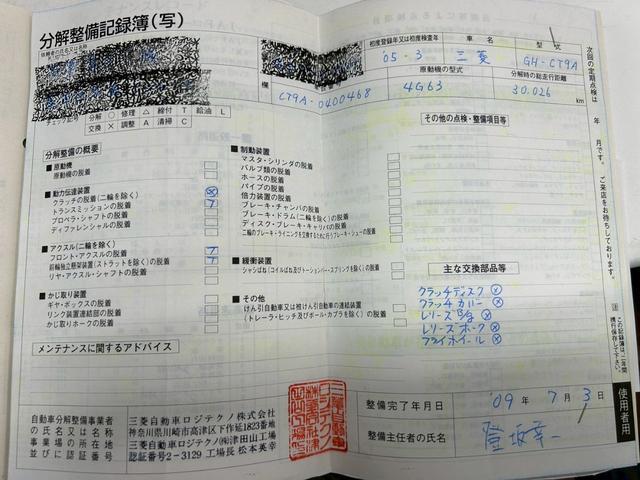 分解整備記録簿(写)
依頼者の氏名又は名称
初度登録年又は初度検査年
車 名
型 式
'05 - 3
三菱
GH-CT9A
原動機の型式
分解時の総走行距離
欄
CT9A - 0400468
4G63
30.026
km
チェック記号
分解 ○ 修理 △ 締付 T 給油 L
交換 × 調整 A 清掃 C
その他の点検・整備項目等
分解整備の概要
■原動機
原動機の脱着
■動力伝達装置
クラッチの脱着(二輪を除く) ⊗
トランスミッションの脱着 T
プロペラ・シャフトの脱着
ディファレンシャルの脱着
■アクスル(二輪を除く)
フロント・アクスルの脱着 T
前輪独立懸架装置(ストラットを除く)の脱着 T
リヤ・アクスル・シャフトの脱着
■かじ取り装置
ギヤ・ボックスの脱着
リンク装置連結部の脱着
かじ取りホークの脱着
■制動装置
マスタ・シリンダの脱着
バルブ類の脱着
ホースの脱着
パイプの脱着
倍力装置の脱着
ブレーキ・チャンバの脱着
ブレーキ・ドラム(二輪を除く)の脱着
ディスク・ブレーキ・キャリパの脱着
二輪のブレーキ・ライニングを交換するために行うブレーキ・シューの脱着
■緩衝装置
シャシばね(コイルばね及びトーションバー・スプリングを除く)の脱着
■その他
けん引自動車又は被けん引自動車の連結装置
(トレーラ・ヒッチ及びボール・カプラを除く)の脱着
主な交換部品等
クラッチディスク ⊗
クラッチカバー ⊗
レリーズB'g ⊗
レリーズホーク ⊗
フライホイール ⊗
メンテナンスに関するアドバイス
次回の定期点検は 年 月です。 ご来店をお待ちしております。
この記録簿は、二年間携行保存して下さい。
使用者用
自動車分解整備事業者
の氏名又は名称
事業場の所在地
並びに認証番号
三菱自動車ロジテクノ株式会社
神奈川県川崎市高津区下作延1823番地
三菱自動車ロジテクノ㈱津田山工場
認証番号2-3129 工場長 松本英幸
整備完了年月日
'09 年 7 月 3 日
整備主任者の氏名
登坂幸一